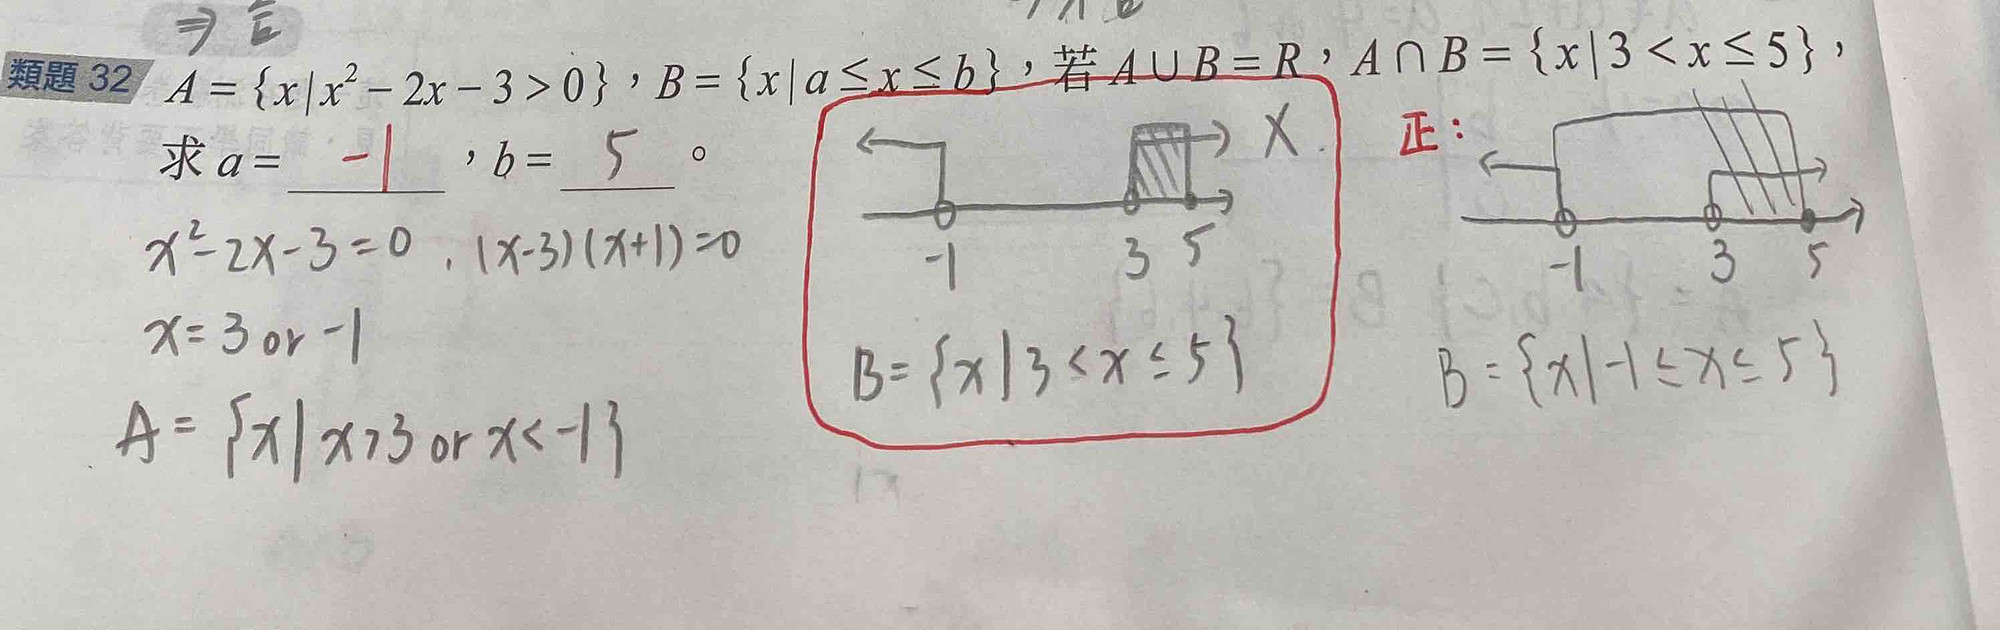 ⇒ 
類題 32 A = {x | x² − 2x − 3 > 0}，B = {x | a ≤ x ≤ b}，若 A ∪ B = R，A ∩ B = {x | 3 < x ≤ 5}，
求 a = -1，b = 5。
x²-2x-3=0，(x-3)(x+1)=0
x=3 or -1
A={x|x>3 or x<-1}
X
-1 3 5
B={x|3<x≤5}
正：
-1 3 5
B={x|-1≤x≤5}